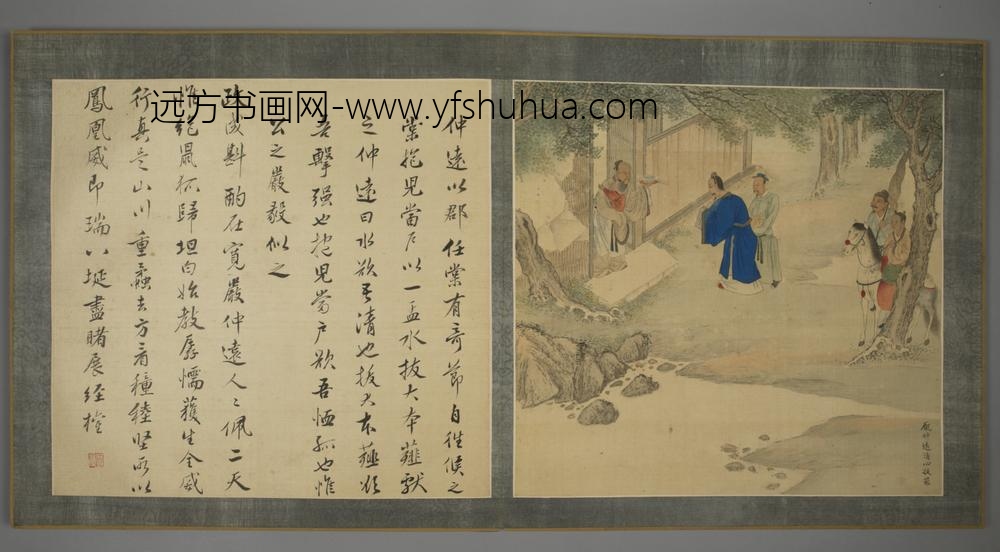 远方书画网-www.yfshuhua.com
仲遠以郡任棠有奇節自往候之
棠抱児當戶以一盂水拔大本薤獻
之仲遠曰水欲吾清也拔大本薤欲
吾擊强也抱児當戶欲吾恤孤也惟
公之嚴毅似之
政成斟酌在寬嚴仲遠人々佩二天
鼠狐歸坦白始教孱懦獲生全威
行真令山川重蠹去方看種稑堅所以
鳳凰威即瑞八埏盡睹展經權
龐仲遠清心拔薤